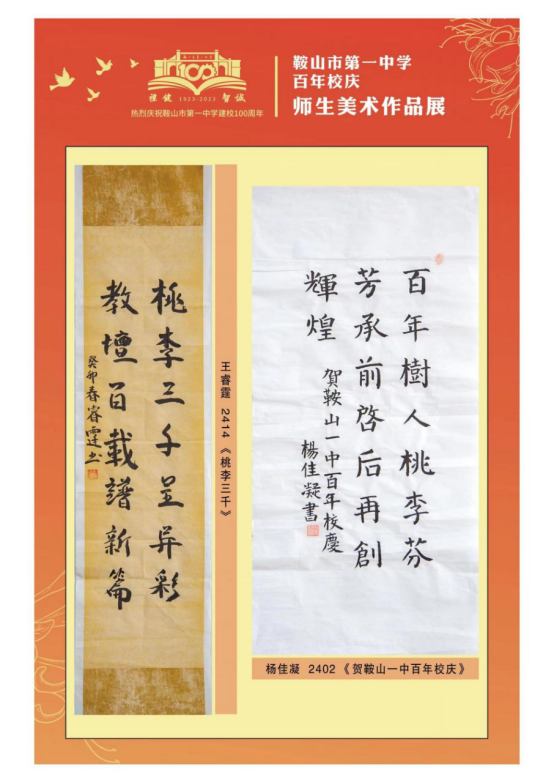 理健 1923-2023 智诚
热烈庆祝鞍山市第一中学建校100周年
鞍山市第一中学
百年校庆
师生美术作品展
桃李三千呈异彩
教壇百載譜新篇
癸卯春睿霆书
王睿霆 2414 《桃李三千》
百年樹人桃李芬
芳承前啓后再創
輝煌
賀鞍山一中百年校慶
楊佳凝書
杨佳凝 2402 《贺鞍山一中百年校庆》